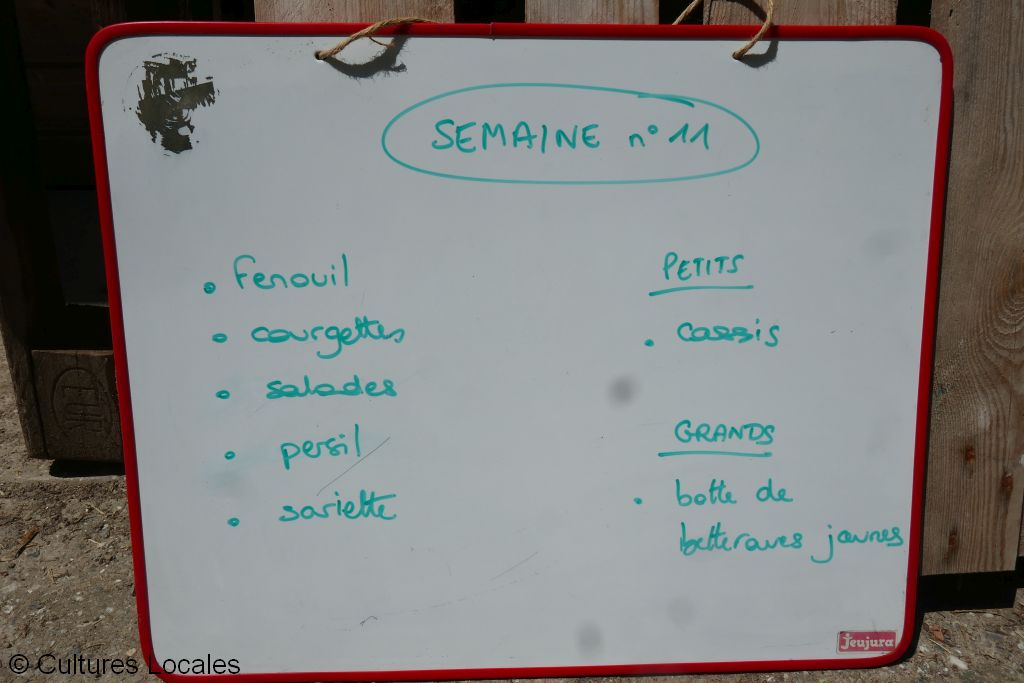 SEMAINE n° 11
• Fenouil
• courgettes
• salades
• persil
• sariette
PETITS
• cassis
GRANDS
• botte de
betteraves jaunes
Jeujura
© Cultures Locales